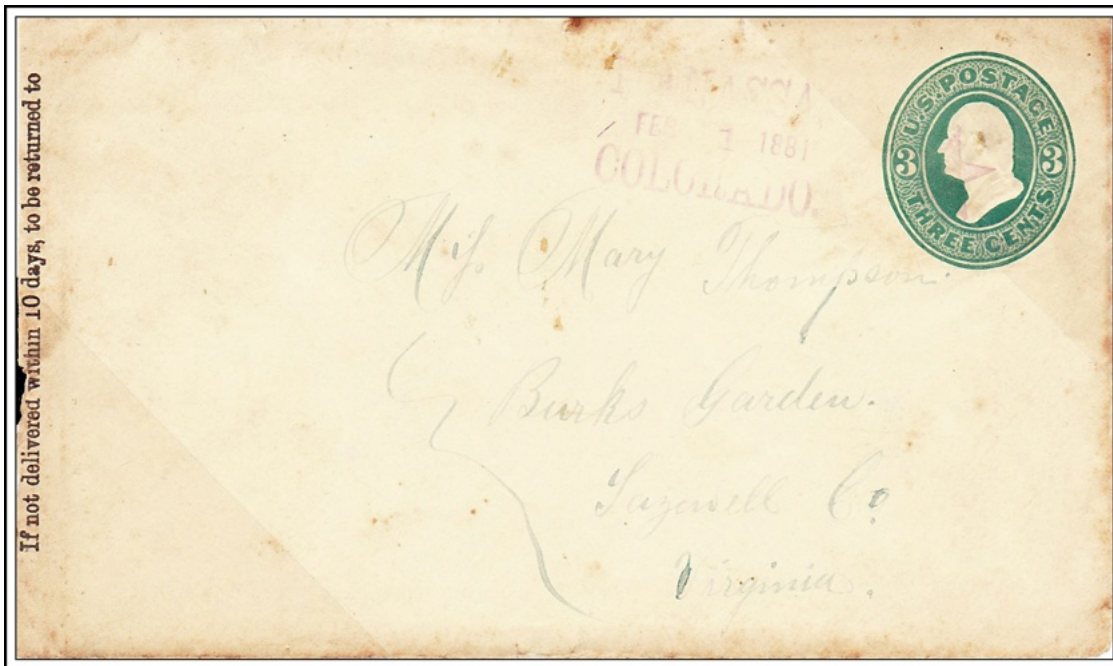 If not delivered within 10 days, to be returned to
FEB 1 1881
COLORADO.
U.S. POSTAGE
3 3
THREE CENTS
Miss Mary Thompson.
Burks Garden.
Tazewell Co
Virginia.